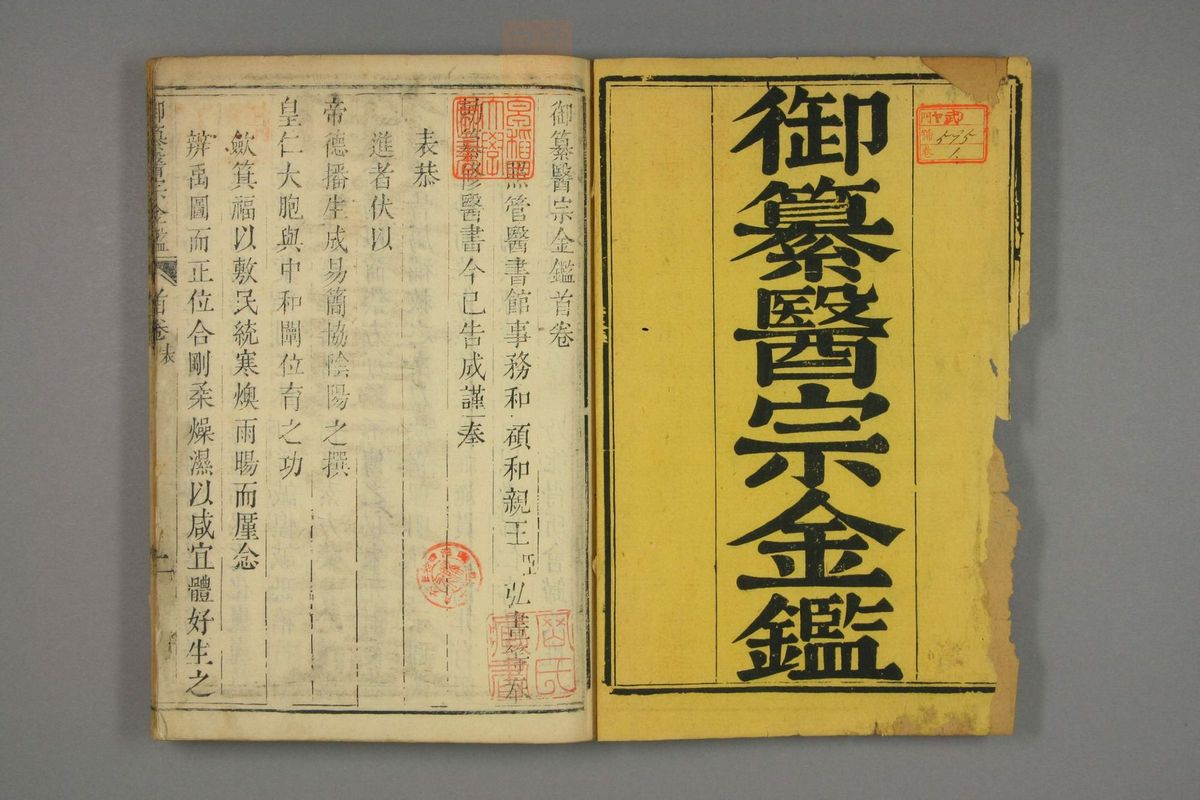 御纂醫宗金鑑
ヤ
門
號 575
卷 1.
御纂醫宗金鑑首卷
照管醫書館事務和碩和親王臣弘晝等奉
勅纂修醫書今已告成謹奉
表恭
進者伏以
帝德播生成易簡協陰陽之撰
皇仁大胞與中和闡位育之功
歛箕福以敷民統寒燠雨暘而厪念
辨禹圖而正位合剛柔燥濕以咸宜體好生之
御纂醫宗金鑑 首卷 表 一
早稻田大學